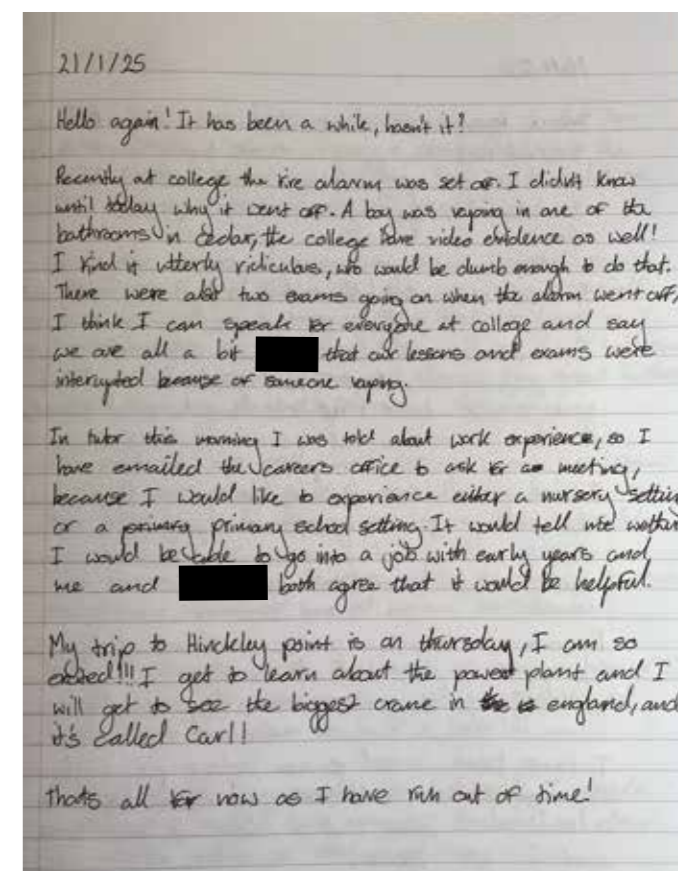 21/1/25
Hello again! It has been a while, hasn't it?
Recently at college the fire alarm was set off. I didn't know
until today why it went off. A boy was vaping in one of the
bathrooms in Cedar, the college have video evidence as well!
I find it utterly ridiculous, who would be dumb enough to do that.
There were also two exams going on when the alarm went off,
I think I can speak for everyone at college and say
we are all a bit that our lessons and exams were
interupted because of someone vaping.
In tutor this morning I was told about work experience, so I
have emailed the careers office to ask for a meeting,
because I would like to experience either a nursery settin
or a primary primary school setting. It would tell me
I would be able to go into a job with early years and
me and both agree that it would be helpful.
My trip to Hinckley point is on thursday, I am so
excited!!! I get to learn about the power plant and I
will get to see the biggest crane in the england, and
it's called Carl!
Thats all for now as I have run out of time!